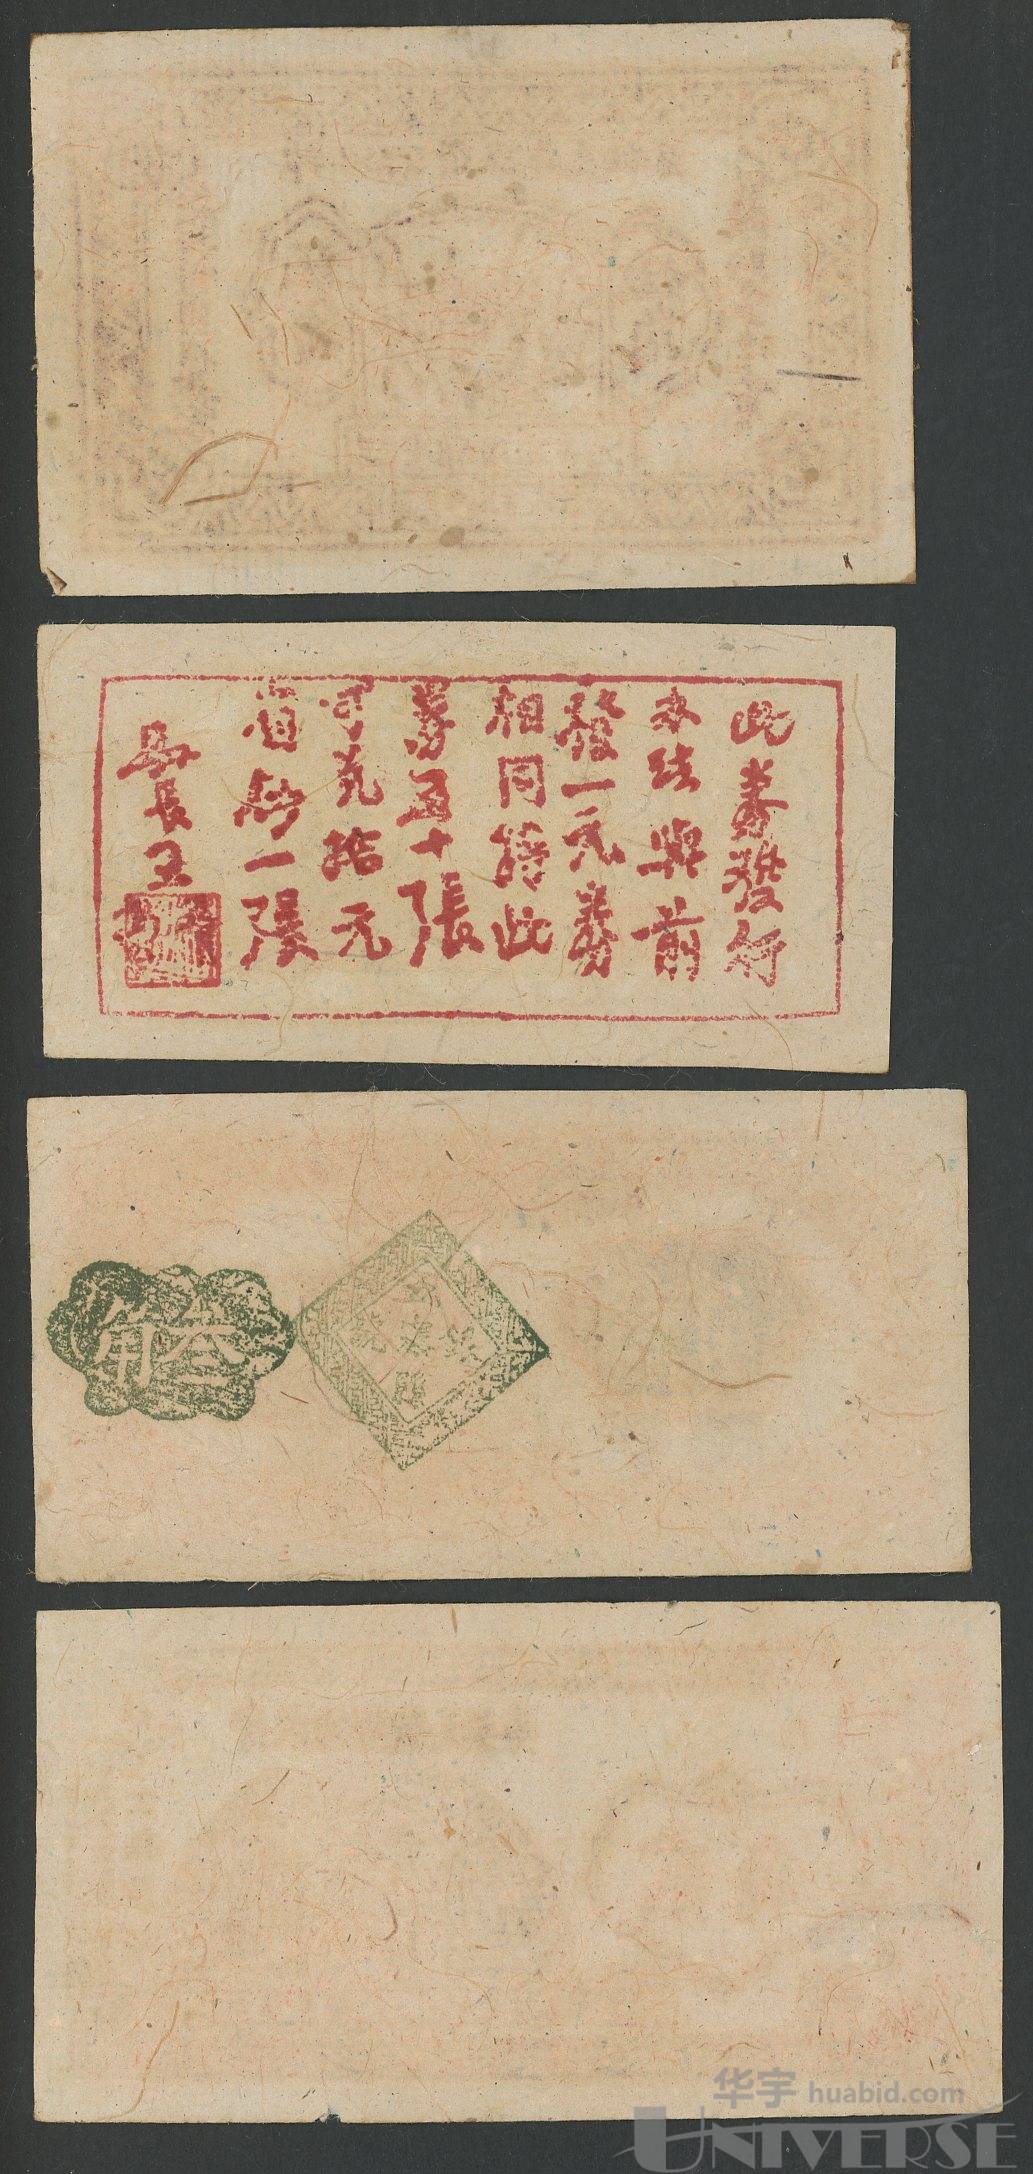 此券發行
办法與前
發一元券
相同積此
券五十張
可兑拾元
省鈔一張
县長王
叁角
华宇 huabid.com
UNIVERSE